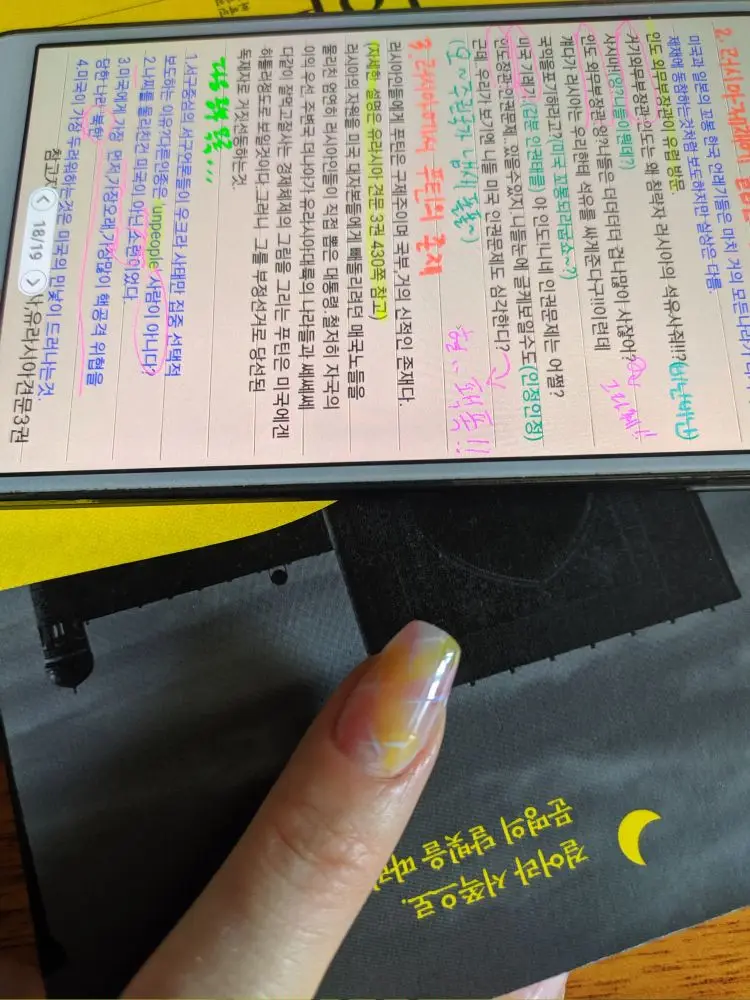 미국과 일본의 꼬붕 한국 언레기들은 마치 거의 모든나라가
체재에 동참하는것처럼 보도하지만 실상은 다름.
인도 외무부장관이 유럽 방문.
인도는 왜 침략자 러시아의 석유사줘!!?(비난비난)
인도 외무부장관:앙?니들은 더더더더 겁나많이 사잖아?
게다가 러시아는 우리한테 석유를 싸게준다구!!이런데
국익을포기하라고?(미국 꼬붕되라굽쇼~?)
미국 기레기:(갑분 인권태클) 야 인도!니네 인권문제는 어쩔?
인도장관:인권문제.있을수있지.니들눈에 글케보일수도(인정인정)
근데 우리가 보기에 니들 미국 인권문제도 심각한디?
(오~주권국가 냄새 폴폴~)
3. 러시아에서 푸틴의 존재
러시아인들에게 푸틴은 구제주이며 국부,거의 신적인 존재다.
(자세한 설명은 유라시아 견문 3권 430쪽 참고)
러시아의 자원을 미국 대자본들에게 빼돌리려던 매국노들을
물리친 엄연히 러시아인들이 직접 뽑은 대통령.철저히 자국의
이익 우선,주변국 더나아가 유라시아대륙의 나라들과 쎄쎄쎄
다같이 잘먹고잘사는 경제체제의 그림을 그리는 푸틴은 미국에겐
히틀러정도로 보일것이다.그러니 그를 부정선거로 당선된
독재자로 거짓선동하는것.
1.서구중심의 서구언론들이 우크리 사태만 집중 선택적
보도하는 이유?다른인종은 unpeople 사람이 아니다?
2.나찌를 물리친건 미국이 아닌 소련이었다.
3.미국에게 가장 먼저 가장오래 가장많이 핵공격 위협을
당한나라 북한
4.미국이 가장 두려워하는것은 미국의 민낯이 드러나는것.
유라시아견문3권
18/19
걸어라 서쪽으로.
문명의 달빛을 따라